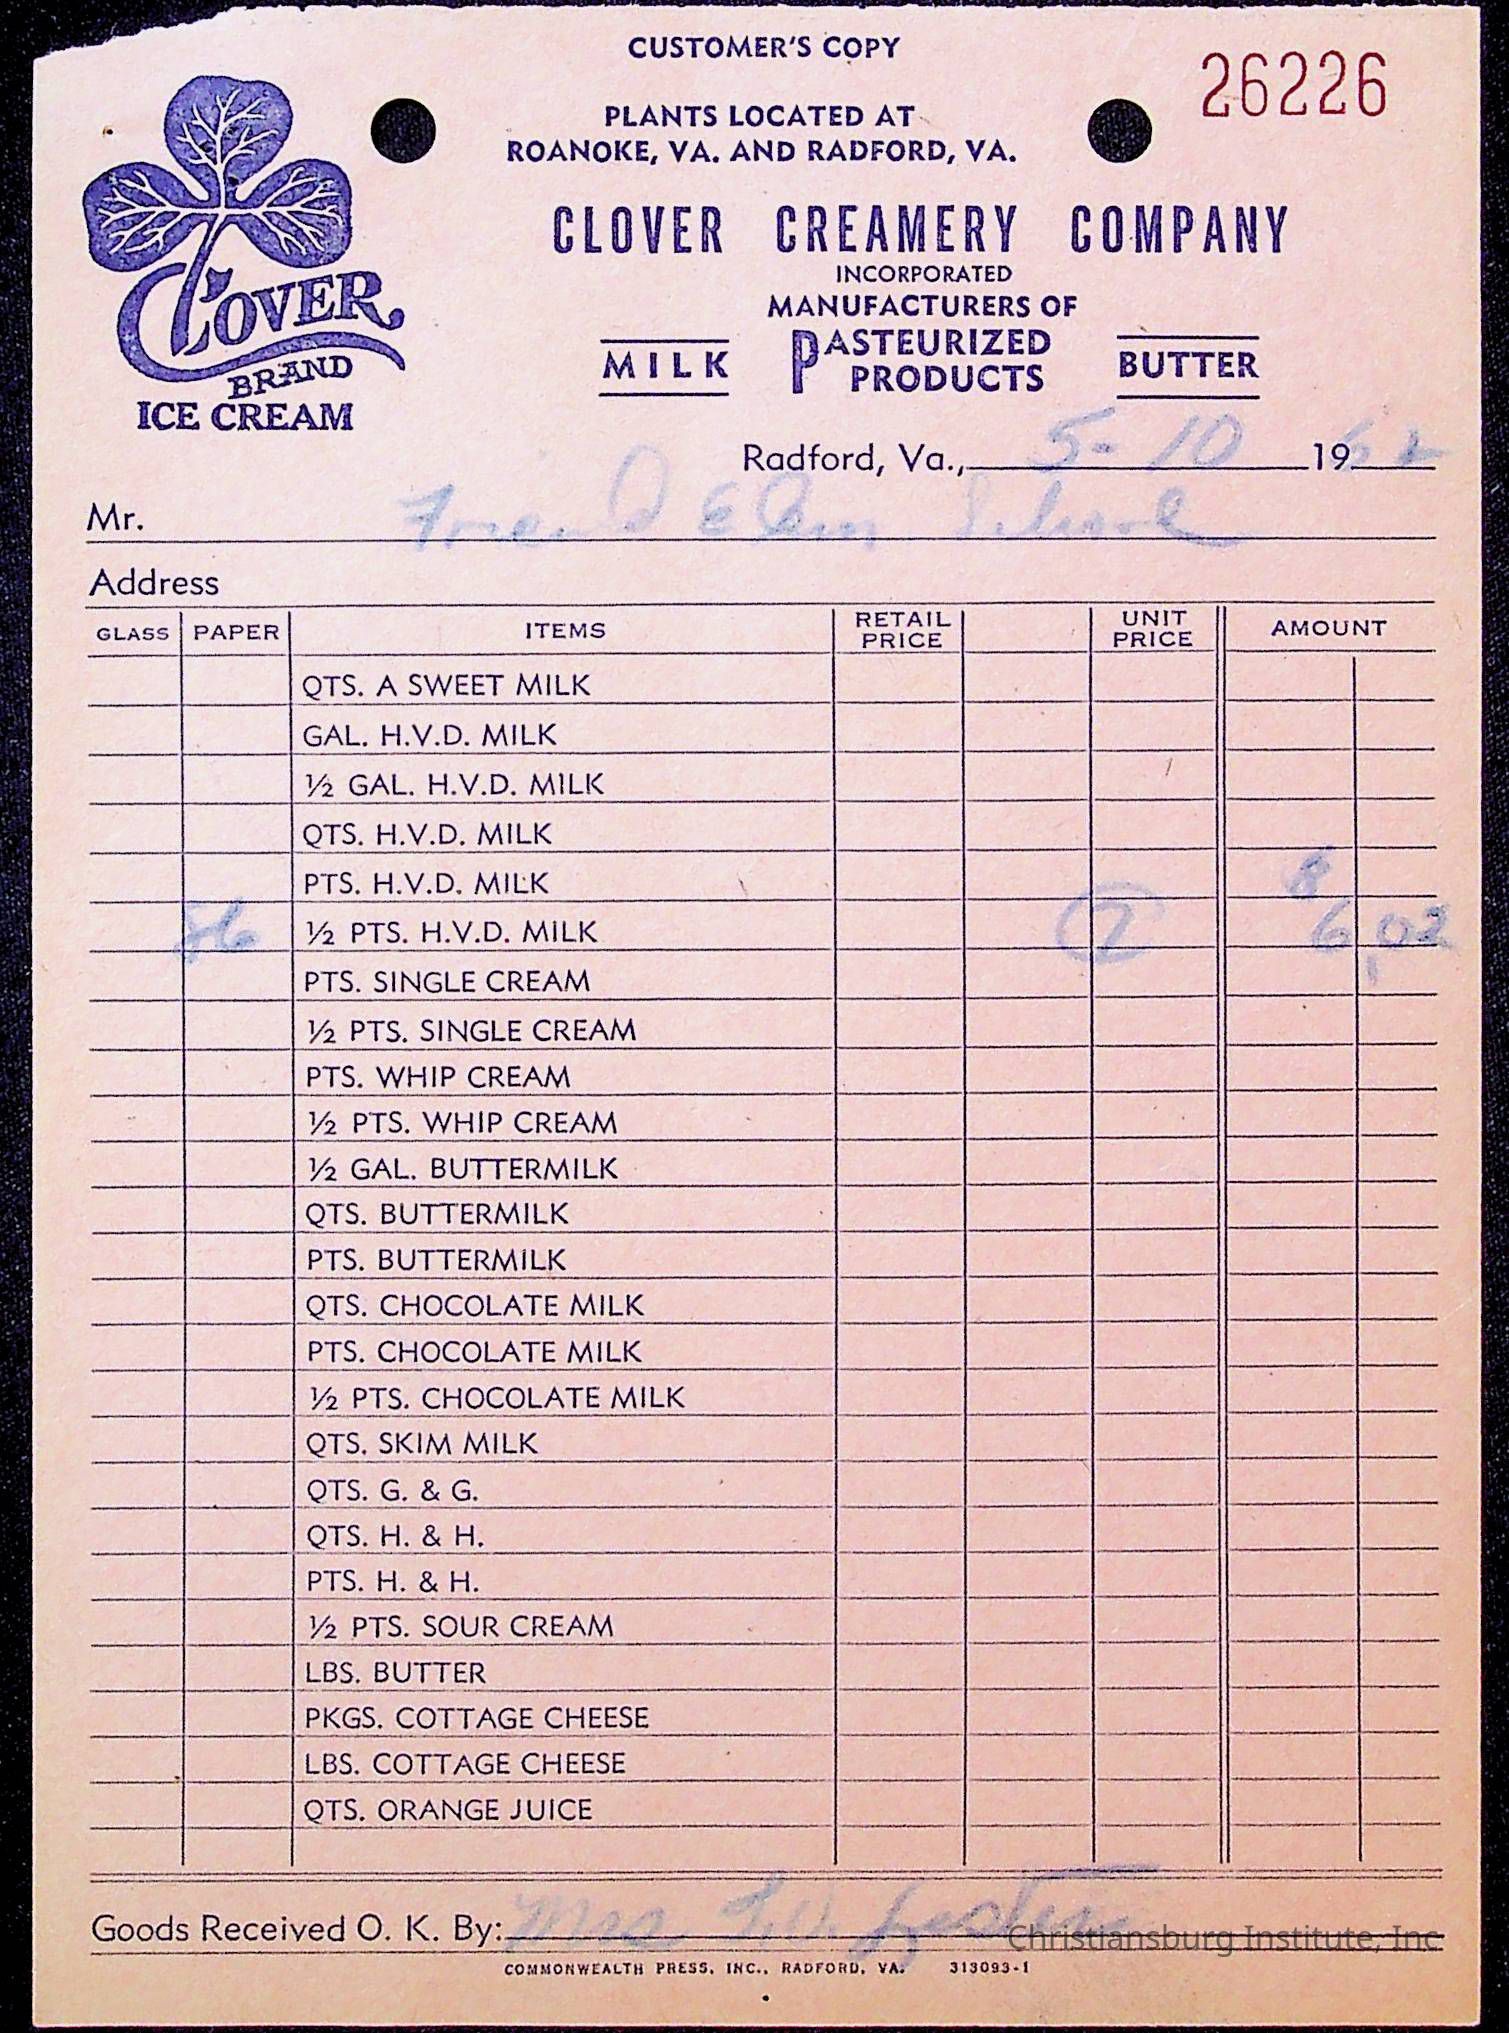 CUSTOMER'S COPY
26226
PLANTS LOCATED AT
ROANOKE, VA. AND RADFORD, VA.
CLOVER CREAMERY COMPANY
INCORPORATED
MANUFACTURERS OF
MILK PASTEURIZED PRODUCTS BUTTER
CLOVER
BRAND
ICE CREAM
Radford, Va., 5-10 1962
Mr. Friend Elem School
Address
GLASS PAPER ITEMS RETAIL PRICE UNIT PRICE AMOUNT
QTS. A SWEET MILK
GAL. H.V.D. MILK
½ GAL. H.V.D. MILK
QTS. H.V.D. MILK
PTS. H.V.D. MILK 8
86 ½ PTS. H.V.D. MILK 7 6,02
PTS. SINGLE CREAM
½ PTS. SINGLE CREAM
PTS. WHIP CREAM
½ PTS. WHIP CREAM
½ GAL. BUTTERMILK
QTS. BUTTERMILK
PTS. BUTTERMILK
QTS. CHOCOLATE MILK
PTS. CHOCOLATE MILK
½ PTS. CHOCOLATE MILK
QTS. SKIM MILK
QTS. G. & G.
QTS. H. & H.
PTS. H. & H.
½ PTS. SOUR CREAM
LBS. BUTTER
PKGS. COTTAGE CHEESE
LBS. COTTAGE CHEESE
QTS. ORANGE JUICE
Goods Received O. K. By: Mrs
Christiansburg Institute, Inc
COMMONWEALTH PRESS, INC., RADFORD, VA. 313093-1